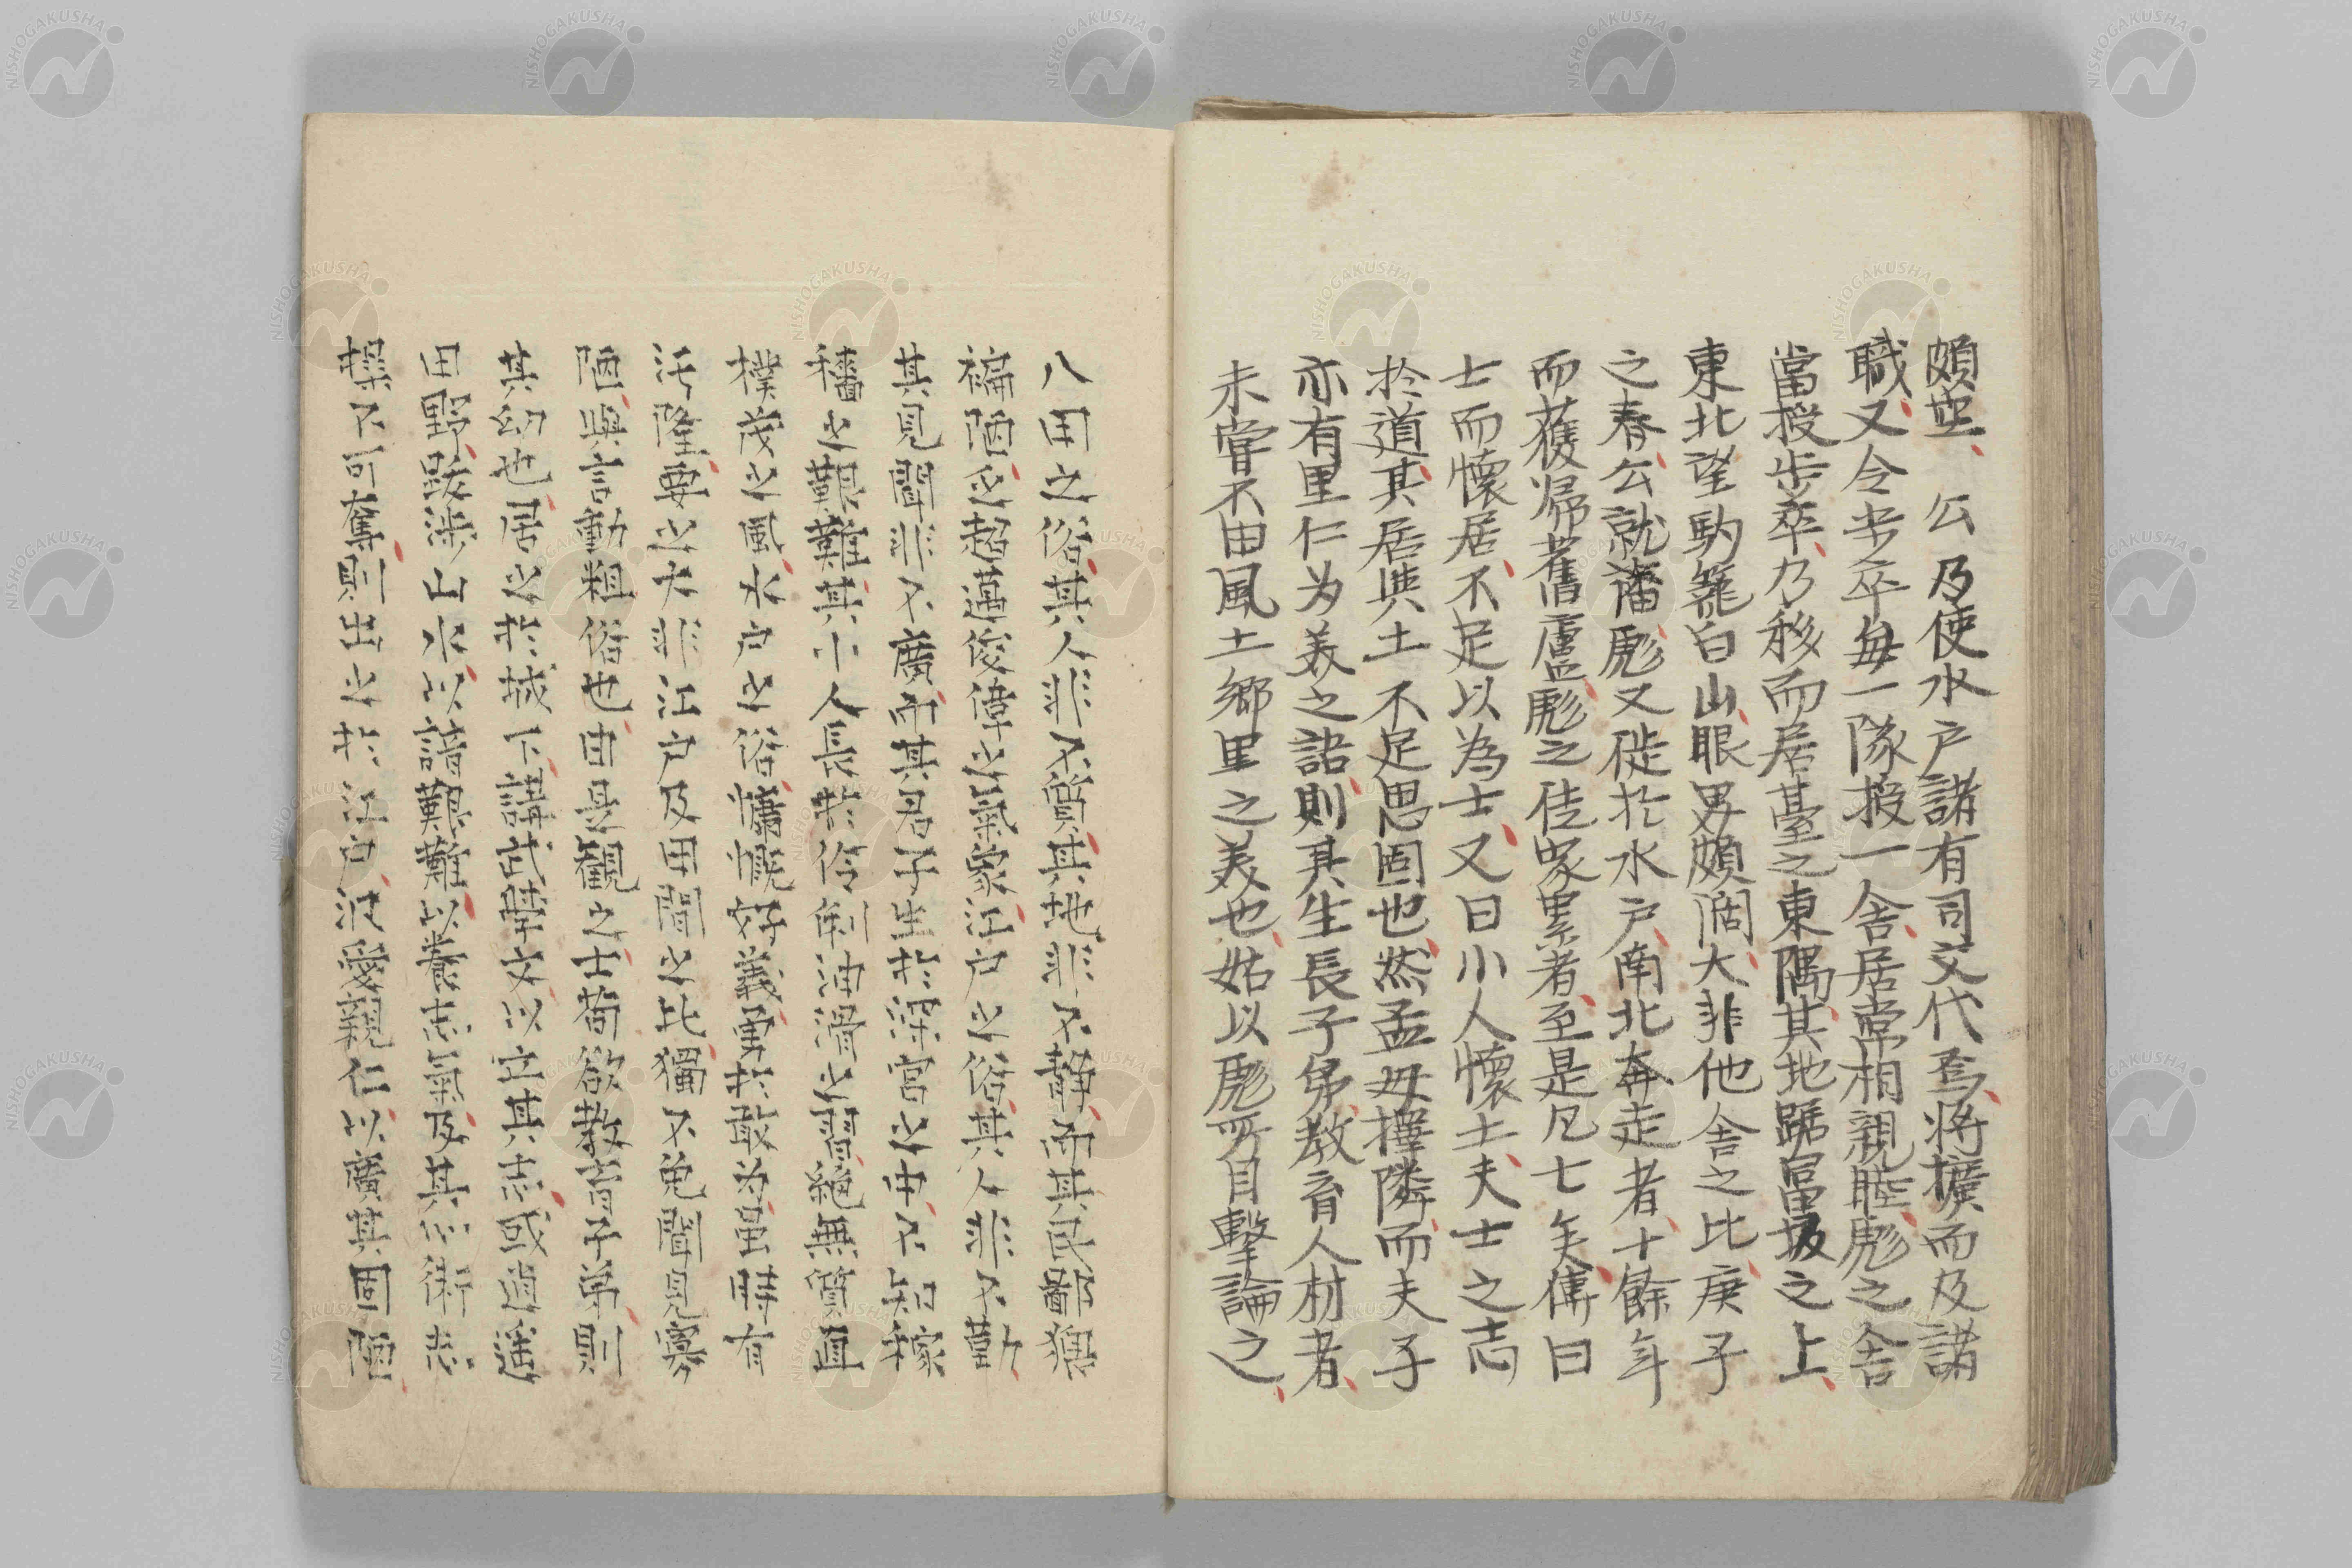 頗空、公乃使水戸諸有司交代焉、将擴而及諸
職、又令步卒每一隊授一舎、居常相親睦、彪之舎
當授步卒、乃移而居䑓之東隅、其地踞冨坂之上、
東北望駒籠白山、眼界頗濶大、非他舎之比、庚子
之春、公就藩、彪又從於水戸、南北奔走者、十餘年
而獲帰舊廬、彪之徒家累者、至是凡七矣、傳曰
士而懷居、不足以為士、又曰小人懷土、夫士之志
於道、其居與土不足思固也、然孟母擇隣、而夫子
亦有里仁为美之語、則其生長子弟、教育人材者、
未嘗不由風土郷里之美也、姑以彪所目擊論之、
八田之俗、其人非不質、其地非不靜、而其民鄙猥
褊陋、乏超邁俊偉之氣象、江戸之俗、其人非不勤、
其見聞非不廣、而其君子生於深宮之中、不知稼
穡之艱難、其小人長於伶俐油滑之習、絶無質直
樸茂之風、水戸之俗、慷慨好義、勇於敢为、虽時有
汚隆、要之大非江戸及田間之比、獨不免聞見寡
陋、與言動粗俗也、由是觀之、士苟欲教育子弟、則
其幼也、居之於城下、講武肄文、以立其志、或逍遥
田野、跋渉山水、以諳艱難、以養志氣、及其心術志
操不可奪、則出之於江戸、汎愛親仁、以廣其固陋、